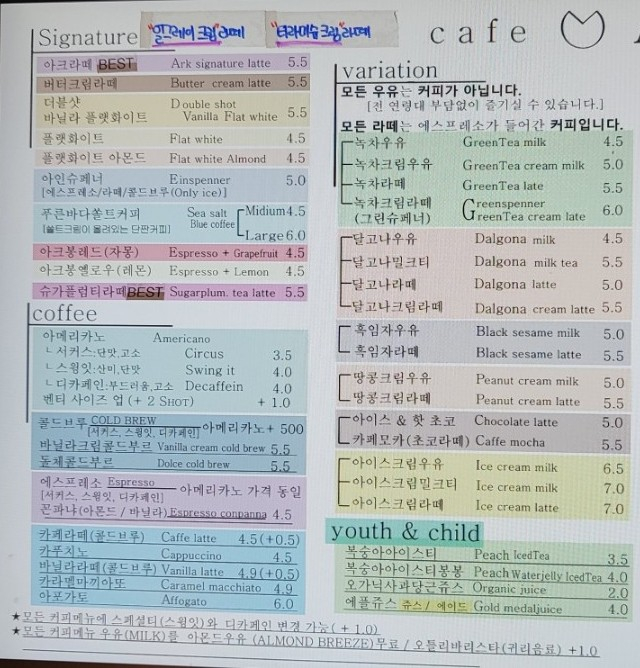 Signature "알프레이크림"라떼 "티라미슈크림"라떼
아크라떼 BEST Ark signature latte 5.5
버터크림라떼 Butter cream latte 5.5
더블샷 Double shot
바닐라 플랫화이트 Vanilla Flat white 5.5
플랫화이트 Flat white 4.5
플랫화이트 아몬드 Flat white Almond 4.5
아인슈페너 Einspenner 5.0
[에스프레소/라떼/콜드브루(Only ice)]
푸른바다쏠트커피 Sea salt Midium 4.5
[쏠트크림이 올려있는 단짠커피] Blue coffee Large 6.0
아크봉레드(자몽) Espresso + Grapefruit 4.5
아크봉옐로우(레몬) Espresso + Lemon 4.5
슈가플럼티라떼 BEST Sugarplum. tea latte 5.5
coffee
아메리카노 Americano
ㄴ서커스:단맛,고소 Circus 3.5
ㄴ스윙잇:산미,단맛 Swing it 4.0
ㄴ디카페인:부드러움,고소 Decaffein 4.0
벤티 사이즈 업 (+ 2 SHOT) + 1.0
콜드브루 COLD BREW [서커스, 스윙잇, 디카페인] 아메리카노+ 500
바닐라크림콜드부르 Vanilla cream cold brew 5.5
돌체콜드부르 Dolce cold brew 5.5
에스프레소 Espresso
[서커스, 스윙잇, 디카페인] 아메리카노 가격 동일
꼰파냐(아몬드 / 바닐라) Espresso conpanna 4.5
카페라떼(콜드부루) Caffe latte 4.5 (+0.5)
카푸치노 Cappuccino 4.5
바닐라라떼(콜드부루) Vanilla latte 4.9 (+0.5)
카라멜마끼아또 Caramel macchiato 4.9
아포가토 Affogato 6.0
cafe
variation
모든 우유는 커피가 아닙니다.
[전 연령대 부담없이 즐기실 수 있습니다.]
모든 라떼는 에스프레소가 들어간 커피입니다.
녹차우유 GreenTea milk 4.5
녹차크림우유 GreenTea cream milk 5.0
녹차라떼 GreenTea latte 5.5
녹차크림라떼 Greenspenner
(그린슈페너) GreenTea cream late 6.0
달고나우유 Dalgona milk 4.5
달고나밀크티 Dalgona milk tea 5.5
달고나라떼 Dalgona latte 5.0
달고나크림라떼 Dalgona cream latte 5.5
흑임자우유 Black sesame milk 5.0
흑임자라떼 Black sesame latte 5.5
땅콩크림우유 Peanut cream milk 5.0
땅콩크림라떼 Peanut cream latte 5.5
아이스 & 핫 초코 Chocolate latte 5.0
카페모카(초코라떼) Caffe mocha 5.5
아이스크림우유 Ice cream milk 6.5
아이스크림밀크티 Ice cream milk 7.0
아이스크림라떼 Ice cream latte 7.0
youth & child
복숭아아이스티 Peach IcedTea 3.5
복숭아아이스티봉봉 Peach Waterjelly IcedTea 4.0
오가닉사과당근쥬스 Organic juice 2.0
에플쥬스 쥬스 / 에이드 Gold medaljuice 4.0
★모든 커피메뉴에 스페셜티(스윙잇)와 디카페인 변경 가능( + 1.0)
★모든 커피메뉴 우유(MILK)를 아몬드우유 (ALMOND BREEZE)무료 / 오틀리바리스타(귀리음료) +1.0